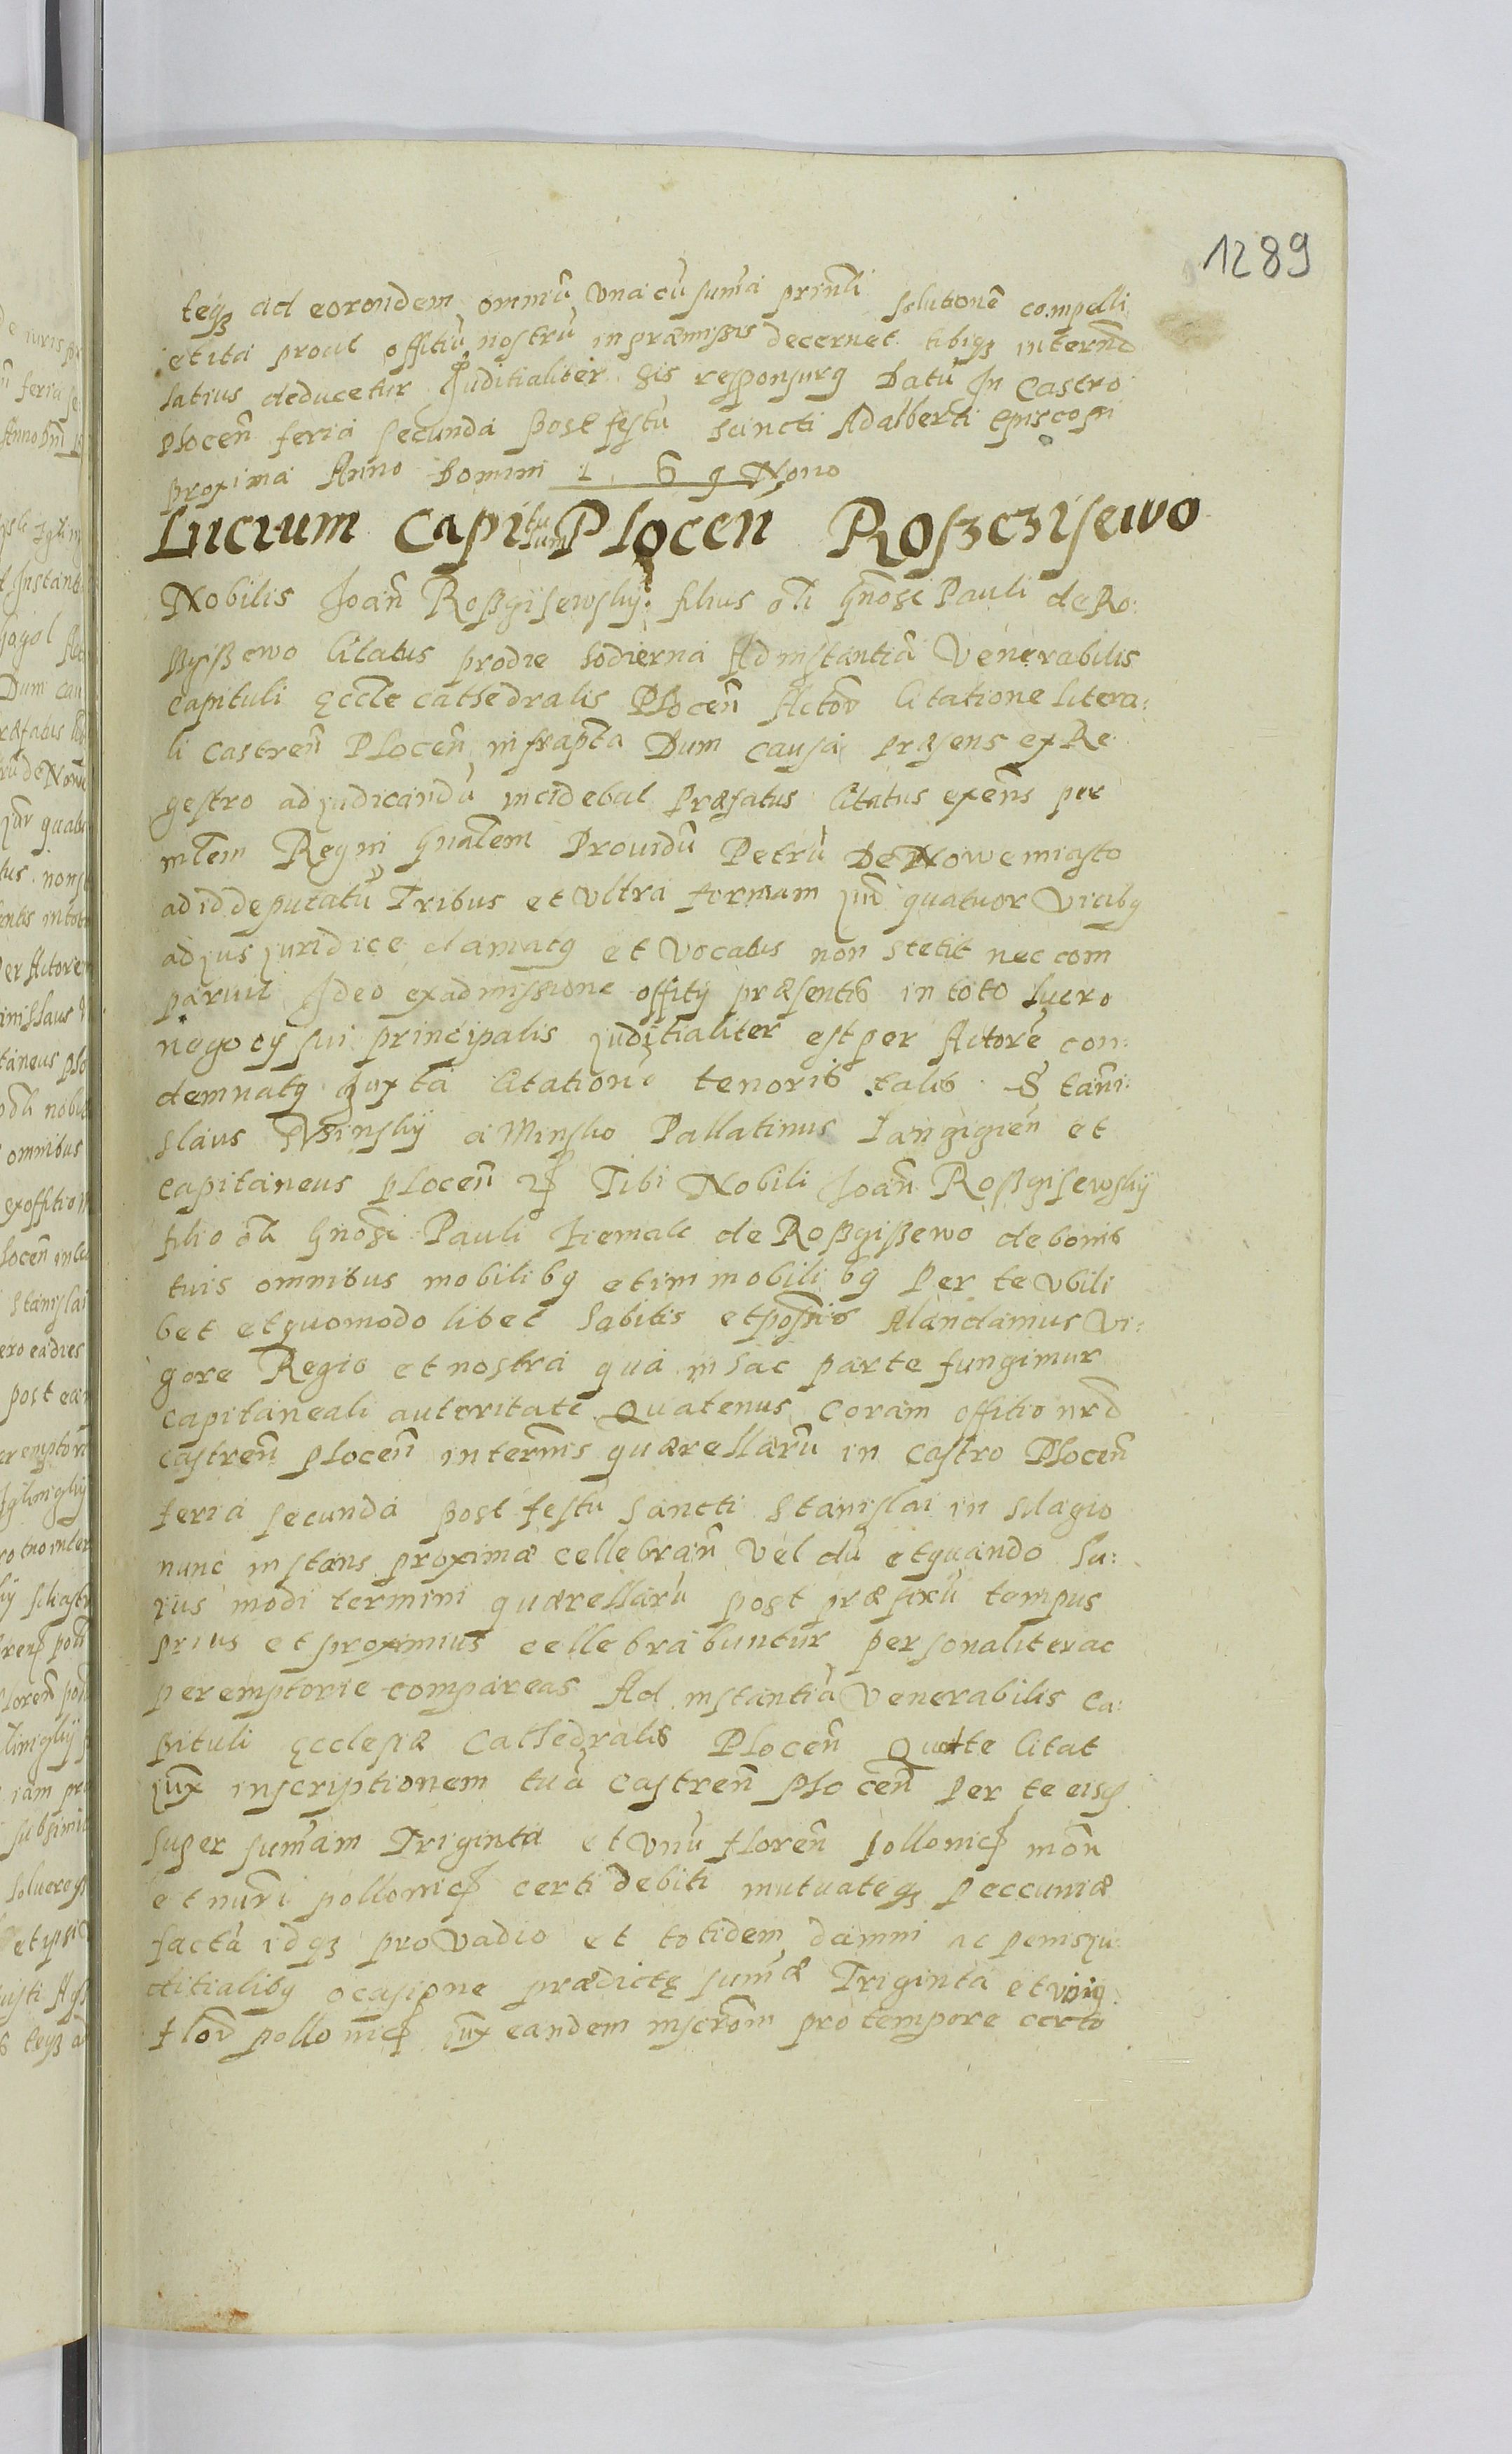 1289
teqз ad eorundem omniū vna cū sum̄a prin̄li solutionē compelli
et ita prout offitiū nostrū in præmissis decernet tibiqз in term̄o
latius deducetur Juditialiter sis responsurq Datū In Castro
Plocen̄ feria secunda post festū Sancti Adalberti Episcopi
proxima Anno Domini 1 6 9 Nono
Lucrum Capitulum Plocen̄ Roszczisewo
Nobilis Joan̄ Roßgisewskÿ filius oli Gn̄osi Pauli de Ro:
ßgißewo Citatus pro die hodierna Ad instantiā Venerabilis
Capituli Eccl̄e Cathedralis Plocen̄ Actor̄ Citatione litera:
li Castren̄ Plocen̄ infrap̄ta Dum causa præsens ex Re
gestro ad judicandū incidebat Præfatus Citatus exēns per
mlem Regni Gn̄alem Prouidū Petrū De Nowemiasto
ad id deputatū Tribus et vltra formam jur̄ quatuor vicibq
ad jus juridice clamatq et vocatus non stetit nec com
paruit Ideo ex admissione offitÿ præsentis in toto lucro
negocÿ sui principalis juditialiter est per Actorē con:
demnatq juxta Citationē tenoris talis Stani:
slaus Minskÿ a Minsko Pallatinus Lancicien̄ et
Capitaneus Plocen̄ Tibi Nobili Joan̄ Roßgisewskÿ
filio oli Gn̄osi Pauli Hiemale de Roßgißewo de bonis
tuis omnibus mobilibq et immobilibq per te vbili
bet et quomodo libet habitis et poss̄is Mandamus vi:
gore Regio et nostra qua in hac parte fungimur
Capitaneali autoritate Quatenus coram offitio nr̄o
Castren̄ Plocen̄ in term̄is quærellarū in Castro Plocen̄
feria secunda post festū Sancti Stanislai in Magio
nunc instans proximæ cellebran̄ vel dū et quando hu:
ius modi termini quærellarū post præfixū tempus
prius et proximius cellebrabuntur personaliter ac
peremptorie compareas Ad instantiā Venerabilis Ca:
pituli Ecclesiæ Cathedralis Plocen̄ Quod te Citat
jux̄ inscriptionem tuā Castren̄ Plocen̄ per te eisd
super sum̄am Triginta et vnū floren̄ pollonic mon̄
et nūri pollonic certi debiti mutuateqз peccuniæ
factā idqз pro vadio et totidem damni ac penis ju
ditialibq ocasione prædictę sum̄æ Triginta et vniq
flor̄ pollonic jux̄ eandem inscrōm pro tempore certo